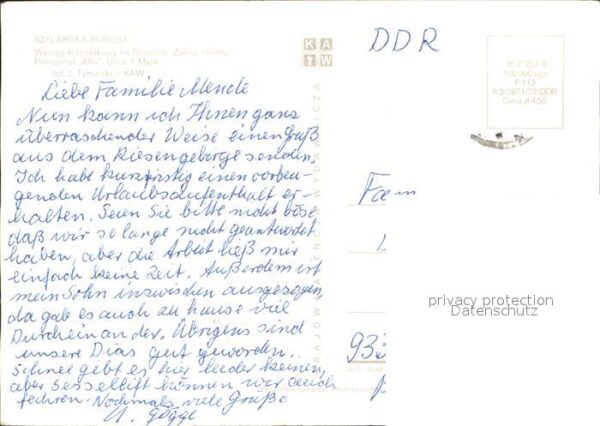 SZKLARSKA PORĘBA
Wyciąg krzesełkowy na Szrenicę. Zakręt Śmierci.
Pensjonat „Alfa". Ulica 1 Maja
fot. J. Tymiński – KAW
KAW
DDR
100 000 egz.
Cena zł 4,50
Liebe Familie Mende
Nun kann ich Ihnen ganz
überraschender Weise einen Gruß
aus dem Riesengebirge senden.
Ich habe kurzfristig einen vorbeu-
genden Urlaubsaufenthalt er-
halten. Seien Sie bitte nicht böse
daß wir so lange nicht geantwortet
haben, aber die Arbeit ließ mir
einfach keine Zeit. Außerdem ist
mein Sohn inzwischen ausgezogen,
da gab es auch zu hause viel
Durcheinander. Übrigens sind
unsere Dias gut geworden.
Schnee gibt es hier leider keinen,
aber Sessellift können wir auch
fahren. Nochmals viele Grüße
Fam
93
privacy protection
Datenschutz